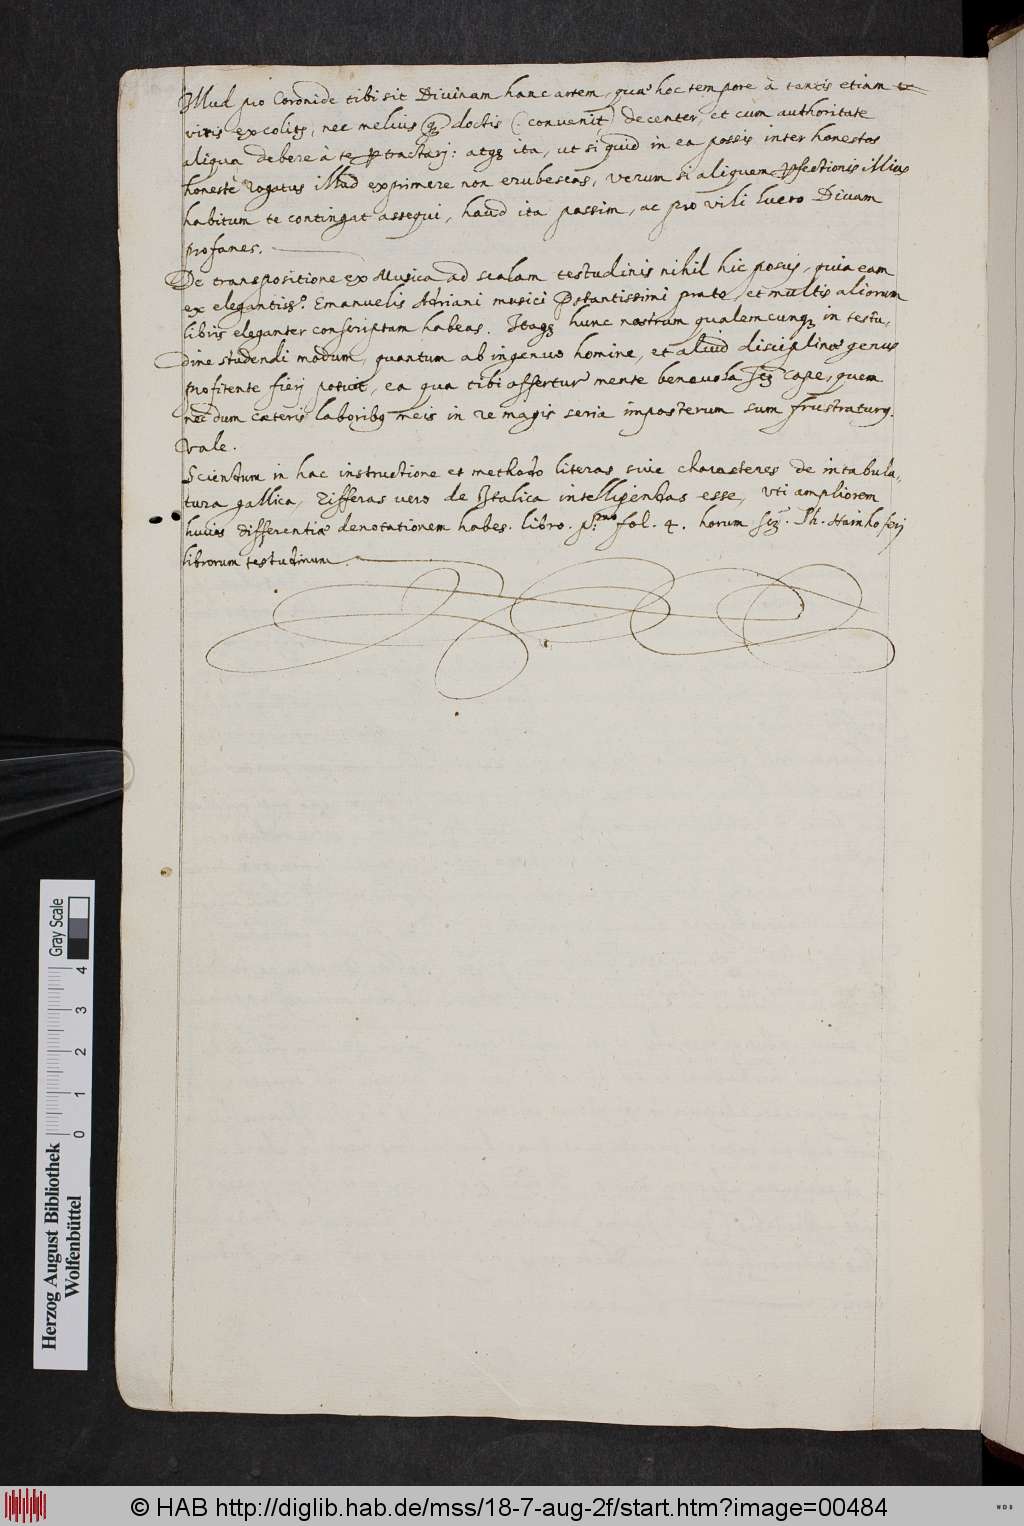 Illud pro Coronide tibi sit Divinam hanc artem, quae hoc tempore à tantis etiam
viris excolitur, nec melius quam doctis (: convenit:) decenter, et cum authoritate
aliqua debere à te pertractarj: atque ita, ut si quid in ea possis inter honestos
honestè rogatus illud exprimere non erubescas, verum si aliquem perfectionis illius
habitum te contingat assequi, haud ita passim, ac pro vili lucro Divam
profanes.
De transpositione ex Musica ad scalam testudinis nihil hic posuj, quia eam
ex elegantiss:o Emanuelis Adriani musici praestantissimi prato, et multis aliorum
libris eleganter conscriptam habeas. Itaque hunc nostrum qualemcunque in testu,
dine studendi modum, quantum ab ingenuo homine, et aliud disciplinae genus
profitente fierj potuit, ea qua tibi offertur mente benevola cape, quem
nec dum caeteris laboribus meis in re magis seria imposterum sum frustraturus.
Vale.
Sciendum in hac instructione et methodo literas sive characteres de intabula,,
tura gallica, Zifferas vero de Italica intelligendas esse, uti ampliorem
huius differentiae denotationem habes. libro. p:mo fol. 4. horum Ph. Hainhoferj
librorum testudinum.
Herzog August Bibliothek
Wolfenbüttel
0 1 2 3 4
Gray Scale
© HAB http://diglib.hab.de/mss/18-7-aug-2f/start.htm?image=00484
WDB